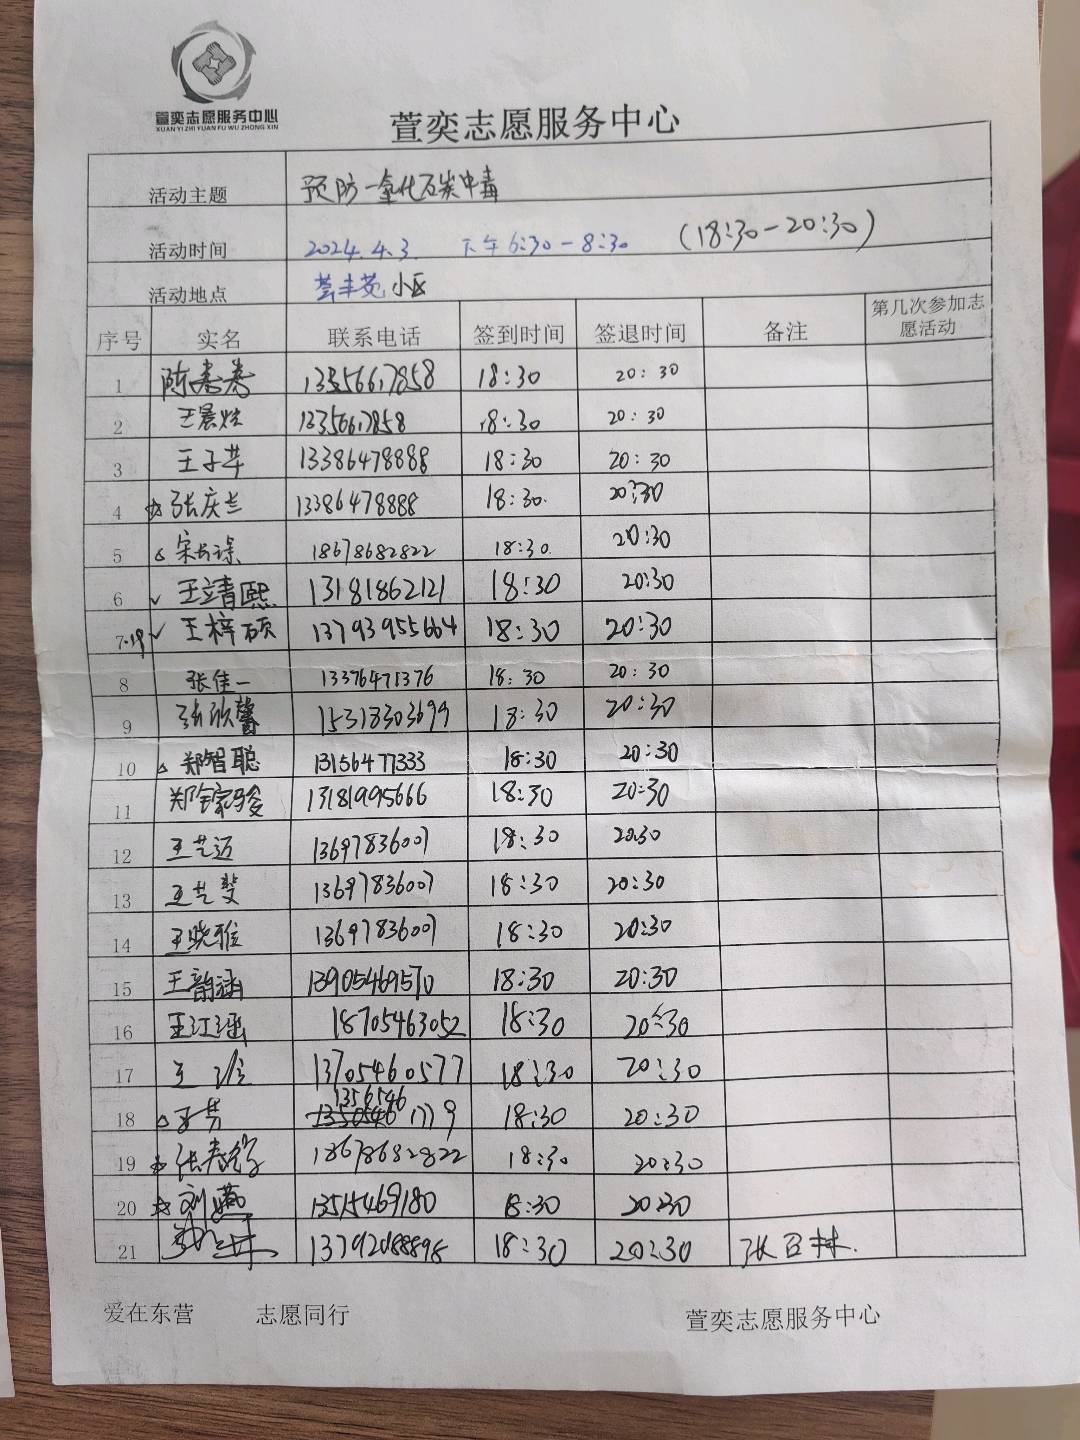 萱奕志愿服务中心
XUAN YI ZHI YUAN FU WU ZHONG XIN
萱奕志愿服务中心
活动主题 预防一氧化碳中毒
活动时间 2024.4.3. 下午6:30-8:30 (18:30-20:30)
活动地点 芸丰苑小区
序号 实名 联系电话 签到时间 签退时间 备注 第几次参加志愿活动
1 陈春春 13356617858 18:30 20:30
2 王晨灿 13356617858 18:30 20:30
3 王子芊 13386478888 18:30 20:30
4 ☆张庆兰 13386478888 18:30. 20:30
5 宋 18678682822 18:30. 20:30
6 ✓ 王靖熙 13181862121 18:30 20:30
7 ✓ 王梓硕 13793955664 18:30 20:30
8 张佳一 13376471376 18:30 20:30
9 张欣馨 15318303699 18:30 20:30
10 △ 郑智聪 13156477333 18:30 20:30
11 郑 13181995666 18:30 20:30
12 王艺迈 13697836007 18:30 20:30
13 王艺斐 13697836007 18:30 20:30
14 王晓雅 13697836007 18:30 20:30
15 王韵涵 13905469570 18:30 20:30
16 王江涵 18705463052 18:30 20:30
17 王 13705460577 18:30 20:30
18 △ 1356546 1779 18:30 20:30
19 ☆ 张春 18678682822 18:30 20:30
20 ☆ 刘燕 13515469180 18:30 20:30
21 13792088898 18:30 20:30 张召林.
爱在东营 志愿同行 萱奕志愿服务中心